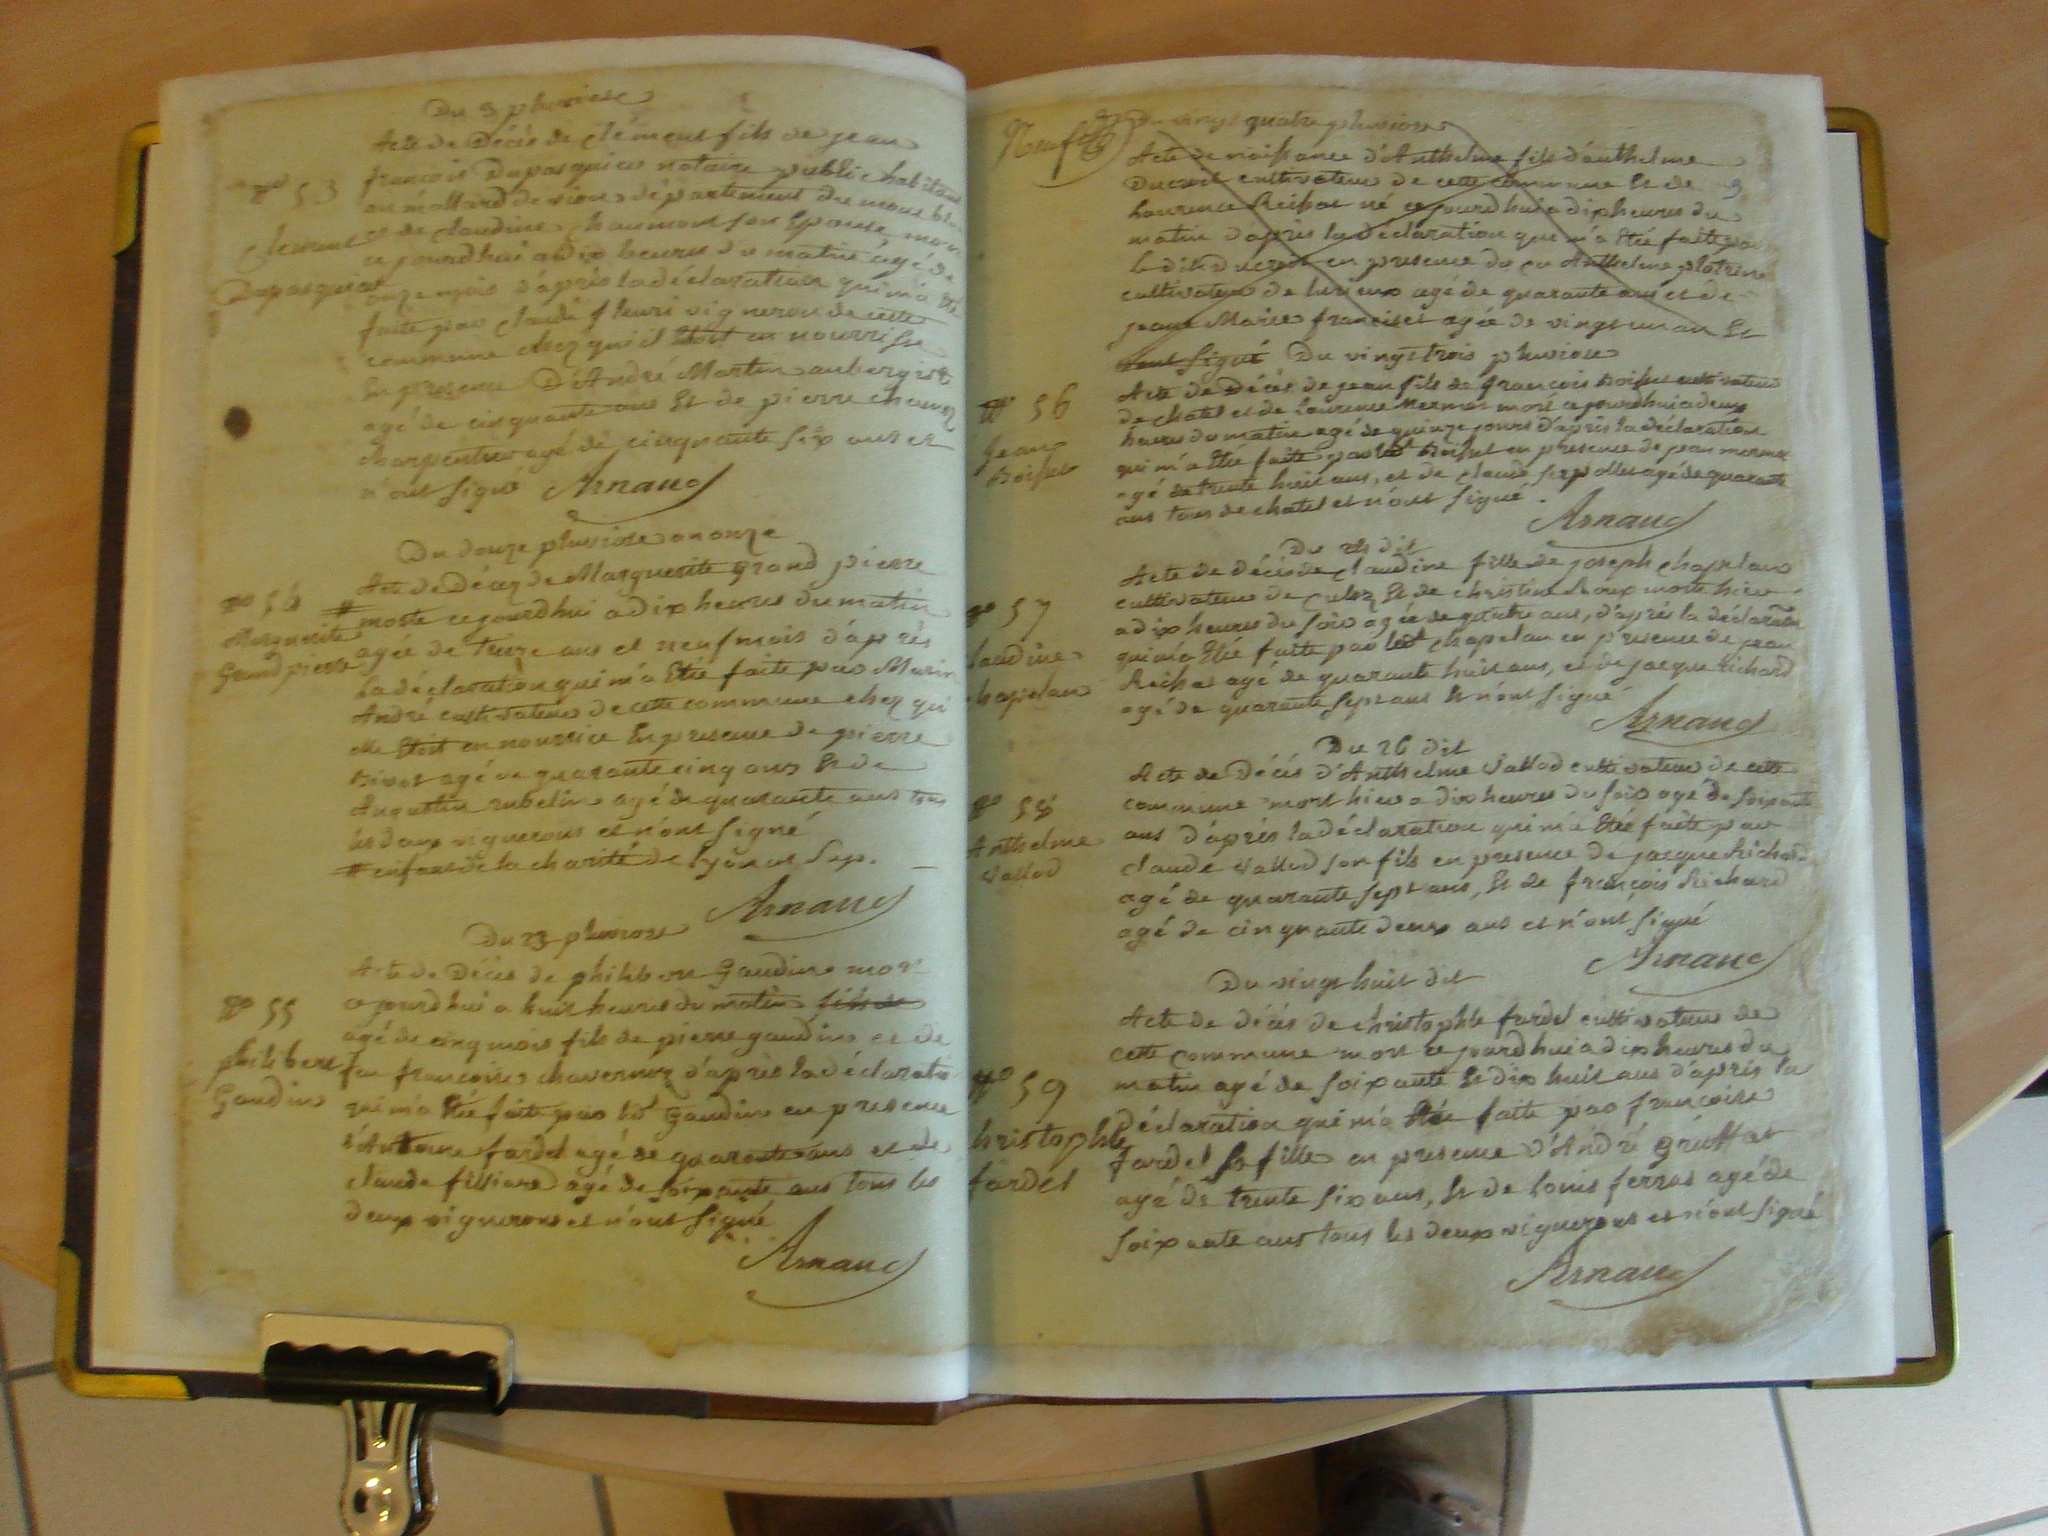 Du 3 pluviose
Acte de Décès de Clément fils de jean
françois Dupasquier notaire public habitant
au mollard de vions département du mont blanc
et de Claudine chaumont son Epouse mort
ce jourdhui a dix heures du matin agé de
onze mois d'après la déclaration qui m'a été
faite par Claude fleuri vigneron de cette
commune chez qui il Etoit en nourrisse
En presence D'André Martin aubergiste
agé de cinquante ans Et de pierre
charpentier agé de cinquante six ans et
n'ont signé Arnaud
n° 53
Clement
Dupasquier
Du douze pluviose an onze
Acte de Décez de Marguerite grand pierre
# morte ce jourdhui a dix heures du matin
agée de treize ans et neuf mois d'après
la déclaration qui m'a Eté faite par Marin
André cultivateur de cette commune chez qui
elle Etoit en nourrice En presence de pierre
agé de quarante cinq ans Et de
Augustin rubelin agé de quarante ans tous
les deux vignerons et n'ont signé
# enfant de la charité de lyon
Arnaud
n° 54
Marguerite
Grand pierre
Du 23 pluviose
Acte de Décès de philibert Gaudin mort
ce jourdhui a huit heures du matin fils de
agé de cinq mois fils de pierre gaudin et de
feu françoise chavernoz d'après la déclaration
qui m'a Eté faite par led. Gaudin en presence
d'Antoine fardel agé de quarante ans et de
Claude filliard agé de soixante ans tous les
deux vignerons et n'ont signé
Arnaud
n° 55
philibert
Gaudin
Neuf
Du vingt quatre pluviose
Acte de naissance d'Anthelme fils d'anthelme
Ducroit cultivateur de cette commune Et de
Laurence Reihas né ce jourdhui a dix heures du
matin d'après la déclaration que m'a Eté faite par
le dit Ducroit en presence de Anthelme
cultivateur de agé de quarante ans et de
jeane Marie franciset agée de vingt un an Et
n'ont signé Du vingt trois pluviose
Acte de Décès de jean fils de françois Boisset cultivateur
de chatel et de Laurence Mermet mort ce jourdhui a deux
heures du matin agé de quinze jours d'après la déclaration
qui m'a Eté faite par led. Boisset en presence de jean mermet
agé de trente huit ans, et de Claude agé de quarante
ans tous de chatel et n'ont signé.
Arnaud
n° 56
jean
Boisset
Du dit
Acte de décès de Claudine fille de joseph Chapelan
cultivateur de culoz Et de christine Roux morte hier
a dix heures du soir agée de quatre ans, d'après la déclaration
qui m'a Eté faite par led. chapelan en presence de jean
Reihas agé de quarante huit ans, et de jacque Richard
agé de quarante sept ans Et n'ont signé
Arnaud
n° 57
laudine
hapelan
Du 26 dit
Acte de Décès d'Anthelme Vallod cultivateur de cette
commune mort hier a dix heures du soir agé de soixante
ans d'après la déclaration qui m'a Eté faite par
Claude Vallod son fils en presence de jacque Richard
agé de quarante sept ans, Et de françois Richard
agé de cinquante deux ans et n'ont signé
Arnaud
n° 58
Anthelme
Vallod
Du vingt huit dit
Acte de décès de christophle fardel cultivateur de
cette commune mort ce jourdhui a dix heures du
matin agé de soixante Et dix huit ans d'après la
déclaration qui m'a Etée faite par françoise
fardel sa fille en presence d'André gruffat
agé de trente six ans, Et de louis ferras agé de
soixante ans tous les deux vignerons et n'ont signé
Arnaud
n° 59
hristophle
fardel